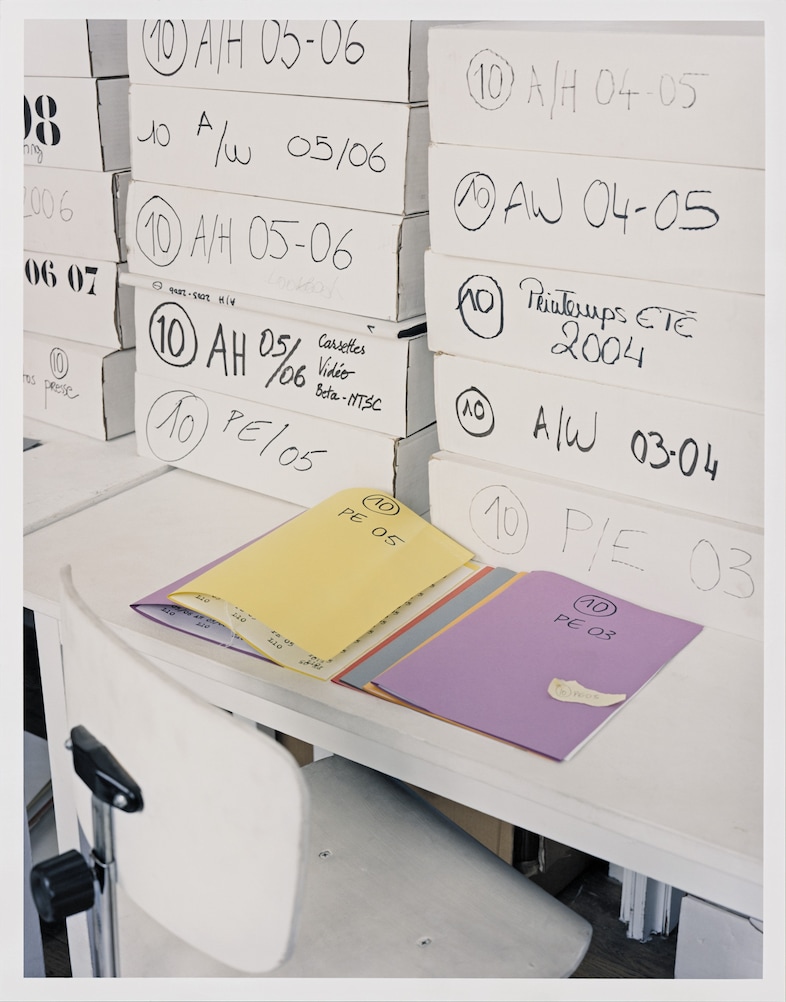 08
2006
06 07
10
presse
10 A/H 05-06
10 A/W 05/06
10 A/H 05-06
10 A/H 2005-2006
10 AH 05/06
Cassettes
Vidéo
Beta-NTSC
10 PE/05
10 A/H 04-05
10 AW 04-05
10 Printemps ETÉ
2004
10 A/W 03-04
10 P/E 03
10
PE 05
10
PE 03